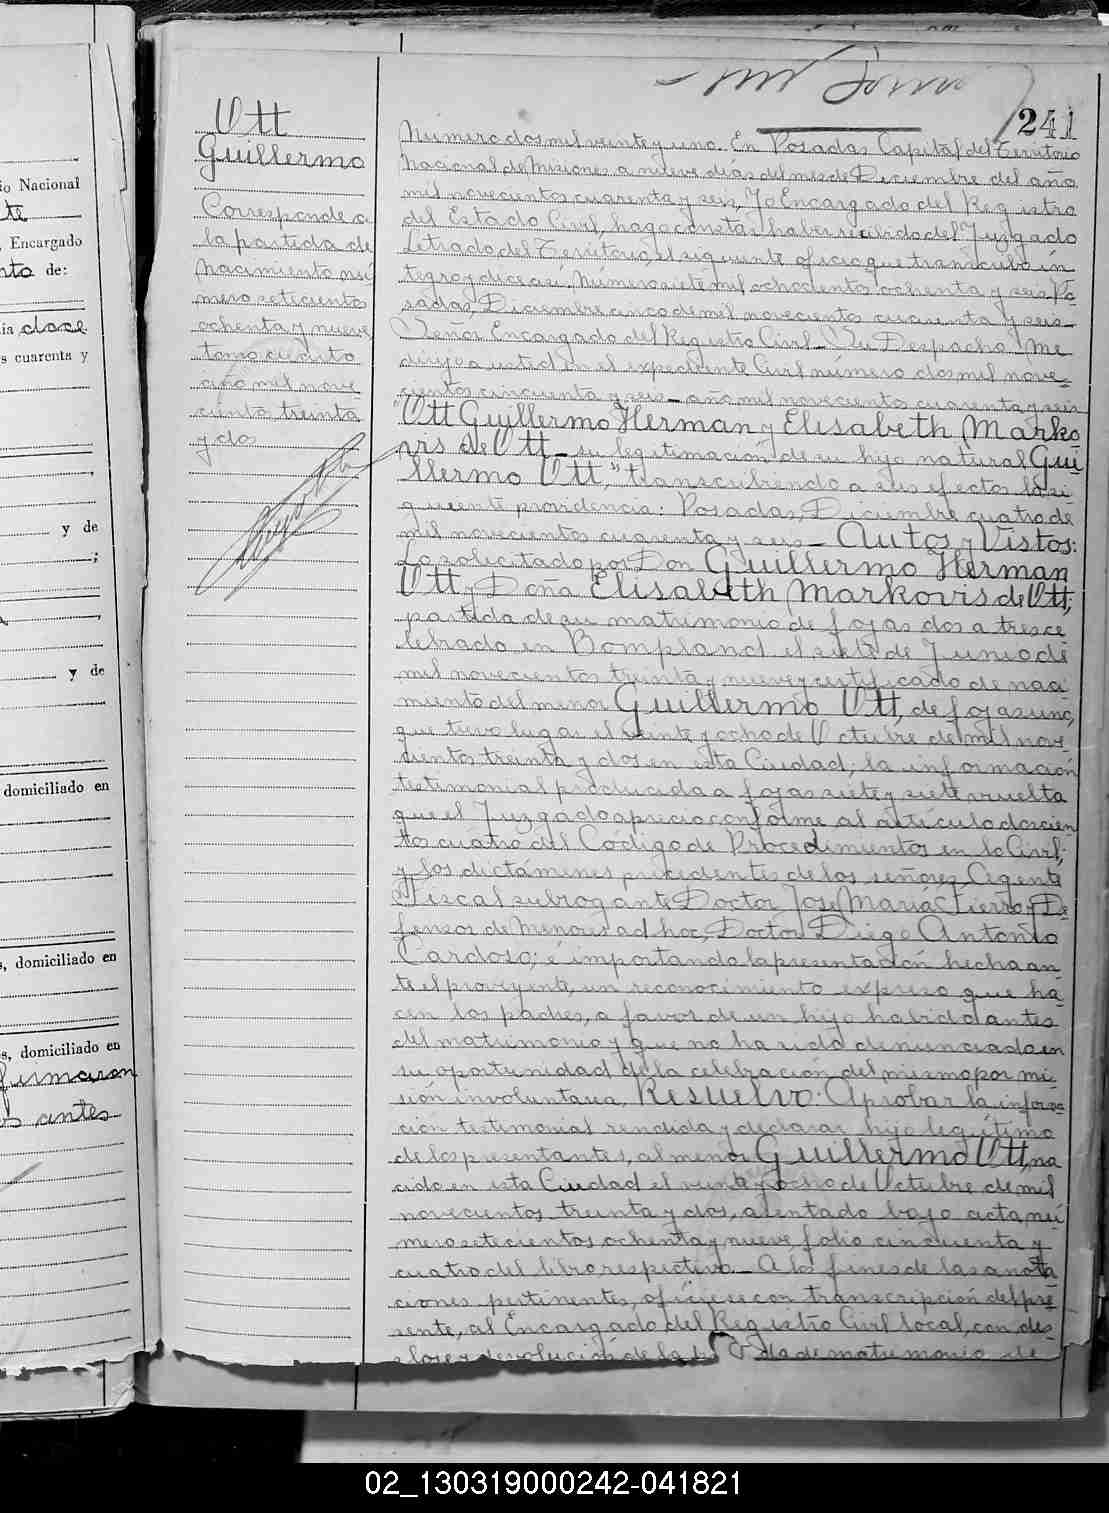 io Nacional
te
, Encargado
nto de:
ia doce
s cuarenta y
y de
;
,
y de
domiciliado en
s, domiciliado en
s, domiciliado en
firmaron
antes
241
Ott
Guillermo
Corresponde a
la partida de
nacimiento nú
mero setecientos
ochenta y nueve
tomo cuarto
año mil nove
cientos treinta
y dos
Número dos mil veinte y uno. En Posadas Capital del Territorio
Nacional de Misiones a nueve días del mes de Diciembre del año
mil novecientos cuarenta y seis, Yo Encargado del Registro
del Estado Civil, hago constar haber recibido del Juzgado
Letrado del Territorio, el siguiente oficio que transcribo ín
tegro y dice así: Número siete mil ochocientos ochenta y seis Po
sadas, Diciembre cinco de mil novecientos cuarenta y seis
Señor Encargado del Registro Civil_ Su Despacho. Me
dirijo a usted en el expediente Civil número dos mil nove
cientos cincuenta y seis_ año mil novecientos cuarenta y seis
Ott Guillermo Herman y Elisabeth Marko
vis de Ott_ su legitimación de su hijo natural Gui
llermo Ott," transcribiendo a sus efectos la si
guiente providencia: Posadas, Diciembre cuatro de
mil novecientos cuarenta y seis_ Autos y Vistos:
Lo solicitado por Don Guillermo Herman
Ott y Doña Elisabeth Markovis de Ott;
partida de su matrimonio de fojas dos a tres ce
lebrado en Bompland el siete de Junio de
mil novecientos treinta y nueve y certificado de naci
miento del menor Guillermo Ott, de fojas uno,
que tuvo lugar el veinte y ocho de Octubre de mil nove
cientos treinta y dos en esta Ciudad; la información
testimonial producida a fojas siete y siete vuelta
que el Juzgado aprecia conforme al artículo doscien
tos cuatro del Código de Procedimientos en lo Civil;
y los dictámenes precedentes de los señores Agente
Fiscal subrogante Doctor José María Fierro y De
fensor de Menores ad hoc, Doctor Diego Antonio
Cardoso; é importando la presentación hecha an
te el proveyente, un reconocimiento expreso que ha
cen los padres, a favor de un hijo habido antes
del matrimonio y que no ha sido denunciado en
su oportunidad de la celebración del mismo por omi
sión involuntaria, Resuelvo: Aprobar la informa
ción testimonial rendida y declarar hijo legítimo
de los presentantes, al menor Guillermo Ott, na
cido en esta Ciudad el veinte y ocho de Octubre de mil
novecientos treinta y dos, asentado bajo acta nú
mero setecientos ochenta y nueve, folio cincuenta y
cuatro del libro respectivo._ A los fines de las anota
ciones pertinentes, ofíciese con transcripción del pre
sente, al Encargado del Registro Civil local, con des
glose y devolución de la de matrimonio de
02_130319000242-041821